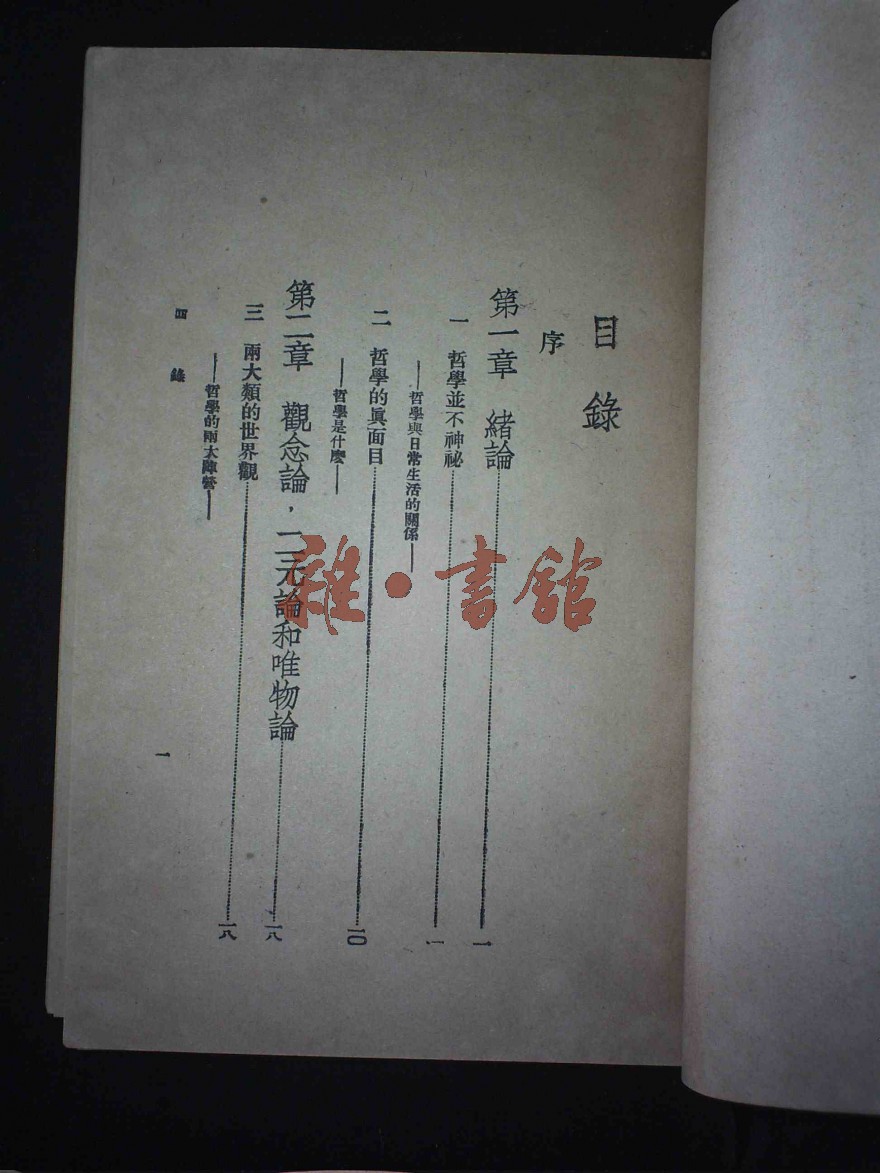 目錄
序
第一章 緒論……一
一 哲學並不神祕……一
——哲學與日常生活的關係——
二 哲學的眞面目……一〇
——哲學是什麽——
第二章 觀念論，二元論和唯物論……一八
三 兩大類的世界觀……一八
——哲學的兩大陣營——
目錄
一
雜·書館